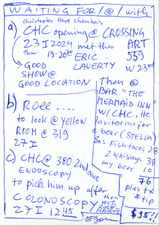 WAITING FOR / @ / with
Christopher Hart Chambers
a) CHC opening @ CROSSING ART
23 I 2024 met there 559
From 19-20:00 ERIC W 23
GOOD LAVERTY
SHOW @
GOOD LOCATION
Then @
BAR "THE
MERMAID INN
W/ CHC. He
invited me for
a beer (STELLA)
So: fish taco 28
2
my beer 10
76
plus tx
& tip
$95
b)
to look @ yellow
ROOM @ 319
27 I
c) CHC @ 380 2nd AVE
ENDOSCOPY
to pick him up after
COLONOSCOPY
27 I 12:45